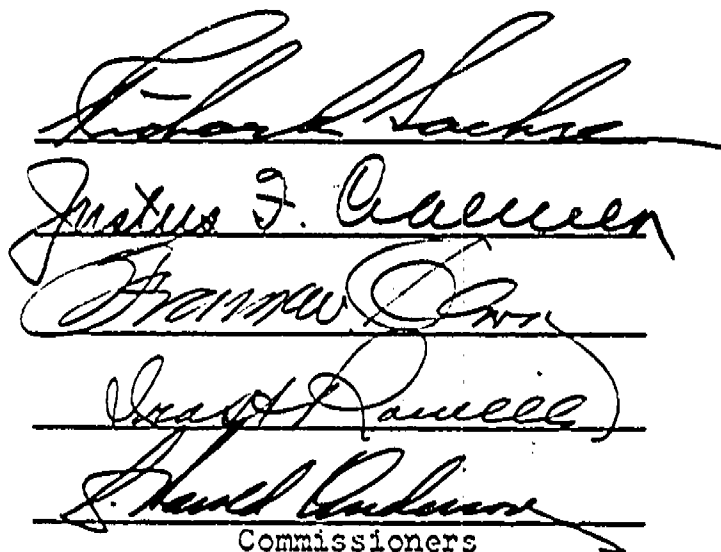 Richard Sachse
Justus F. Craemer
Franck C. Havenner
Ira H. Rowell
J. Harold Anderson
Commissioners